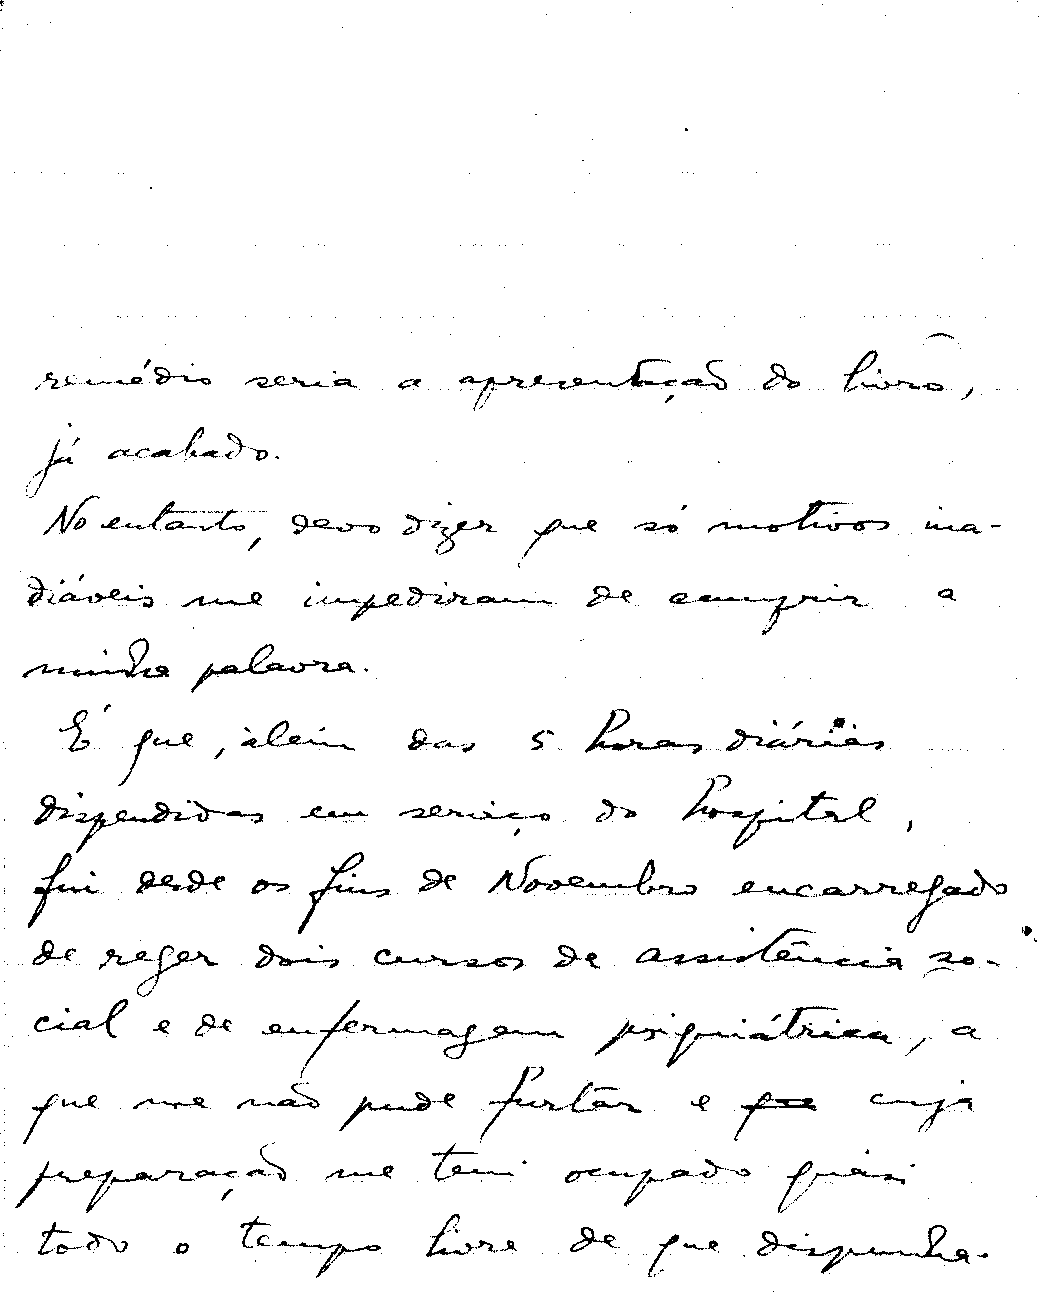 remédio seria a apresentação do livro,
já acabado.
No entanto, devo dizer que só motivos ina-
diáveis me impediram de cumprir a
minha palavra.
É que, àlem das 5 horas diárias
dispendidas em serviço do Hospital,
fui desde os fins de Novembro encarregado
de reger dois cursos de assistência so-
cial e de enfermagem psiquiátrica, a
que me não pude furtar e que cuja
preparação me tem ocupado quàsi
todo o tempo livre de que dispunha.